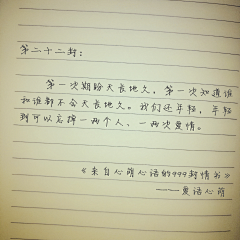 第二十二封：
第一次期盼天长地久，第一次知道谁
和谁都不会天长地久。我们还年轻，年轻
到可以忘掉一两个人、一两次爱情。
《来自心萌心语的999封情书》
——爱语心萌